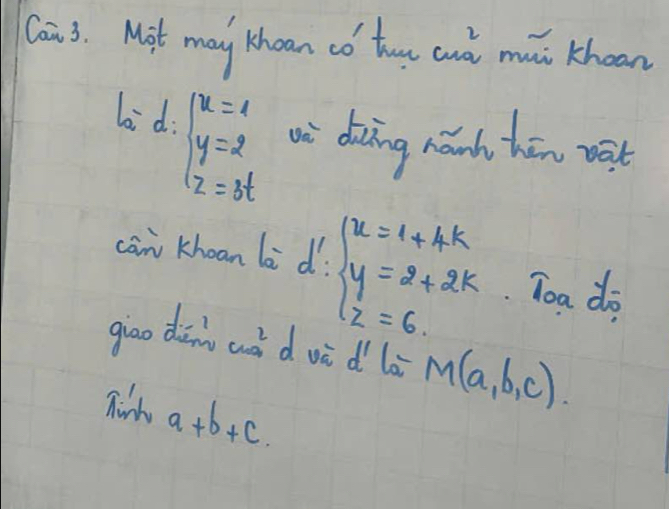 Câu 3. Một máy khoan có trục của mũi khoan
là d: { x = 1
y = 2
z = 3t
và đường rãnh trên vật
cần khoan là d': { x = 1 + 4k
y = 2 + 2k
z = 6
. Toạ độ
giao điểm của d và d' là M(a,b,c).
Tính a+b+c.